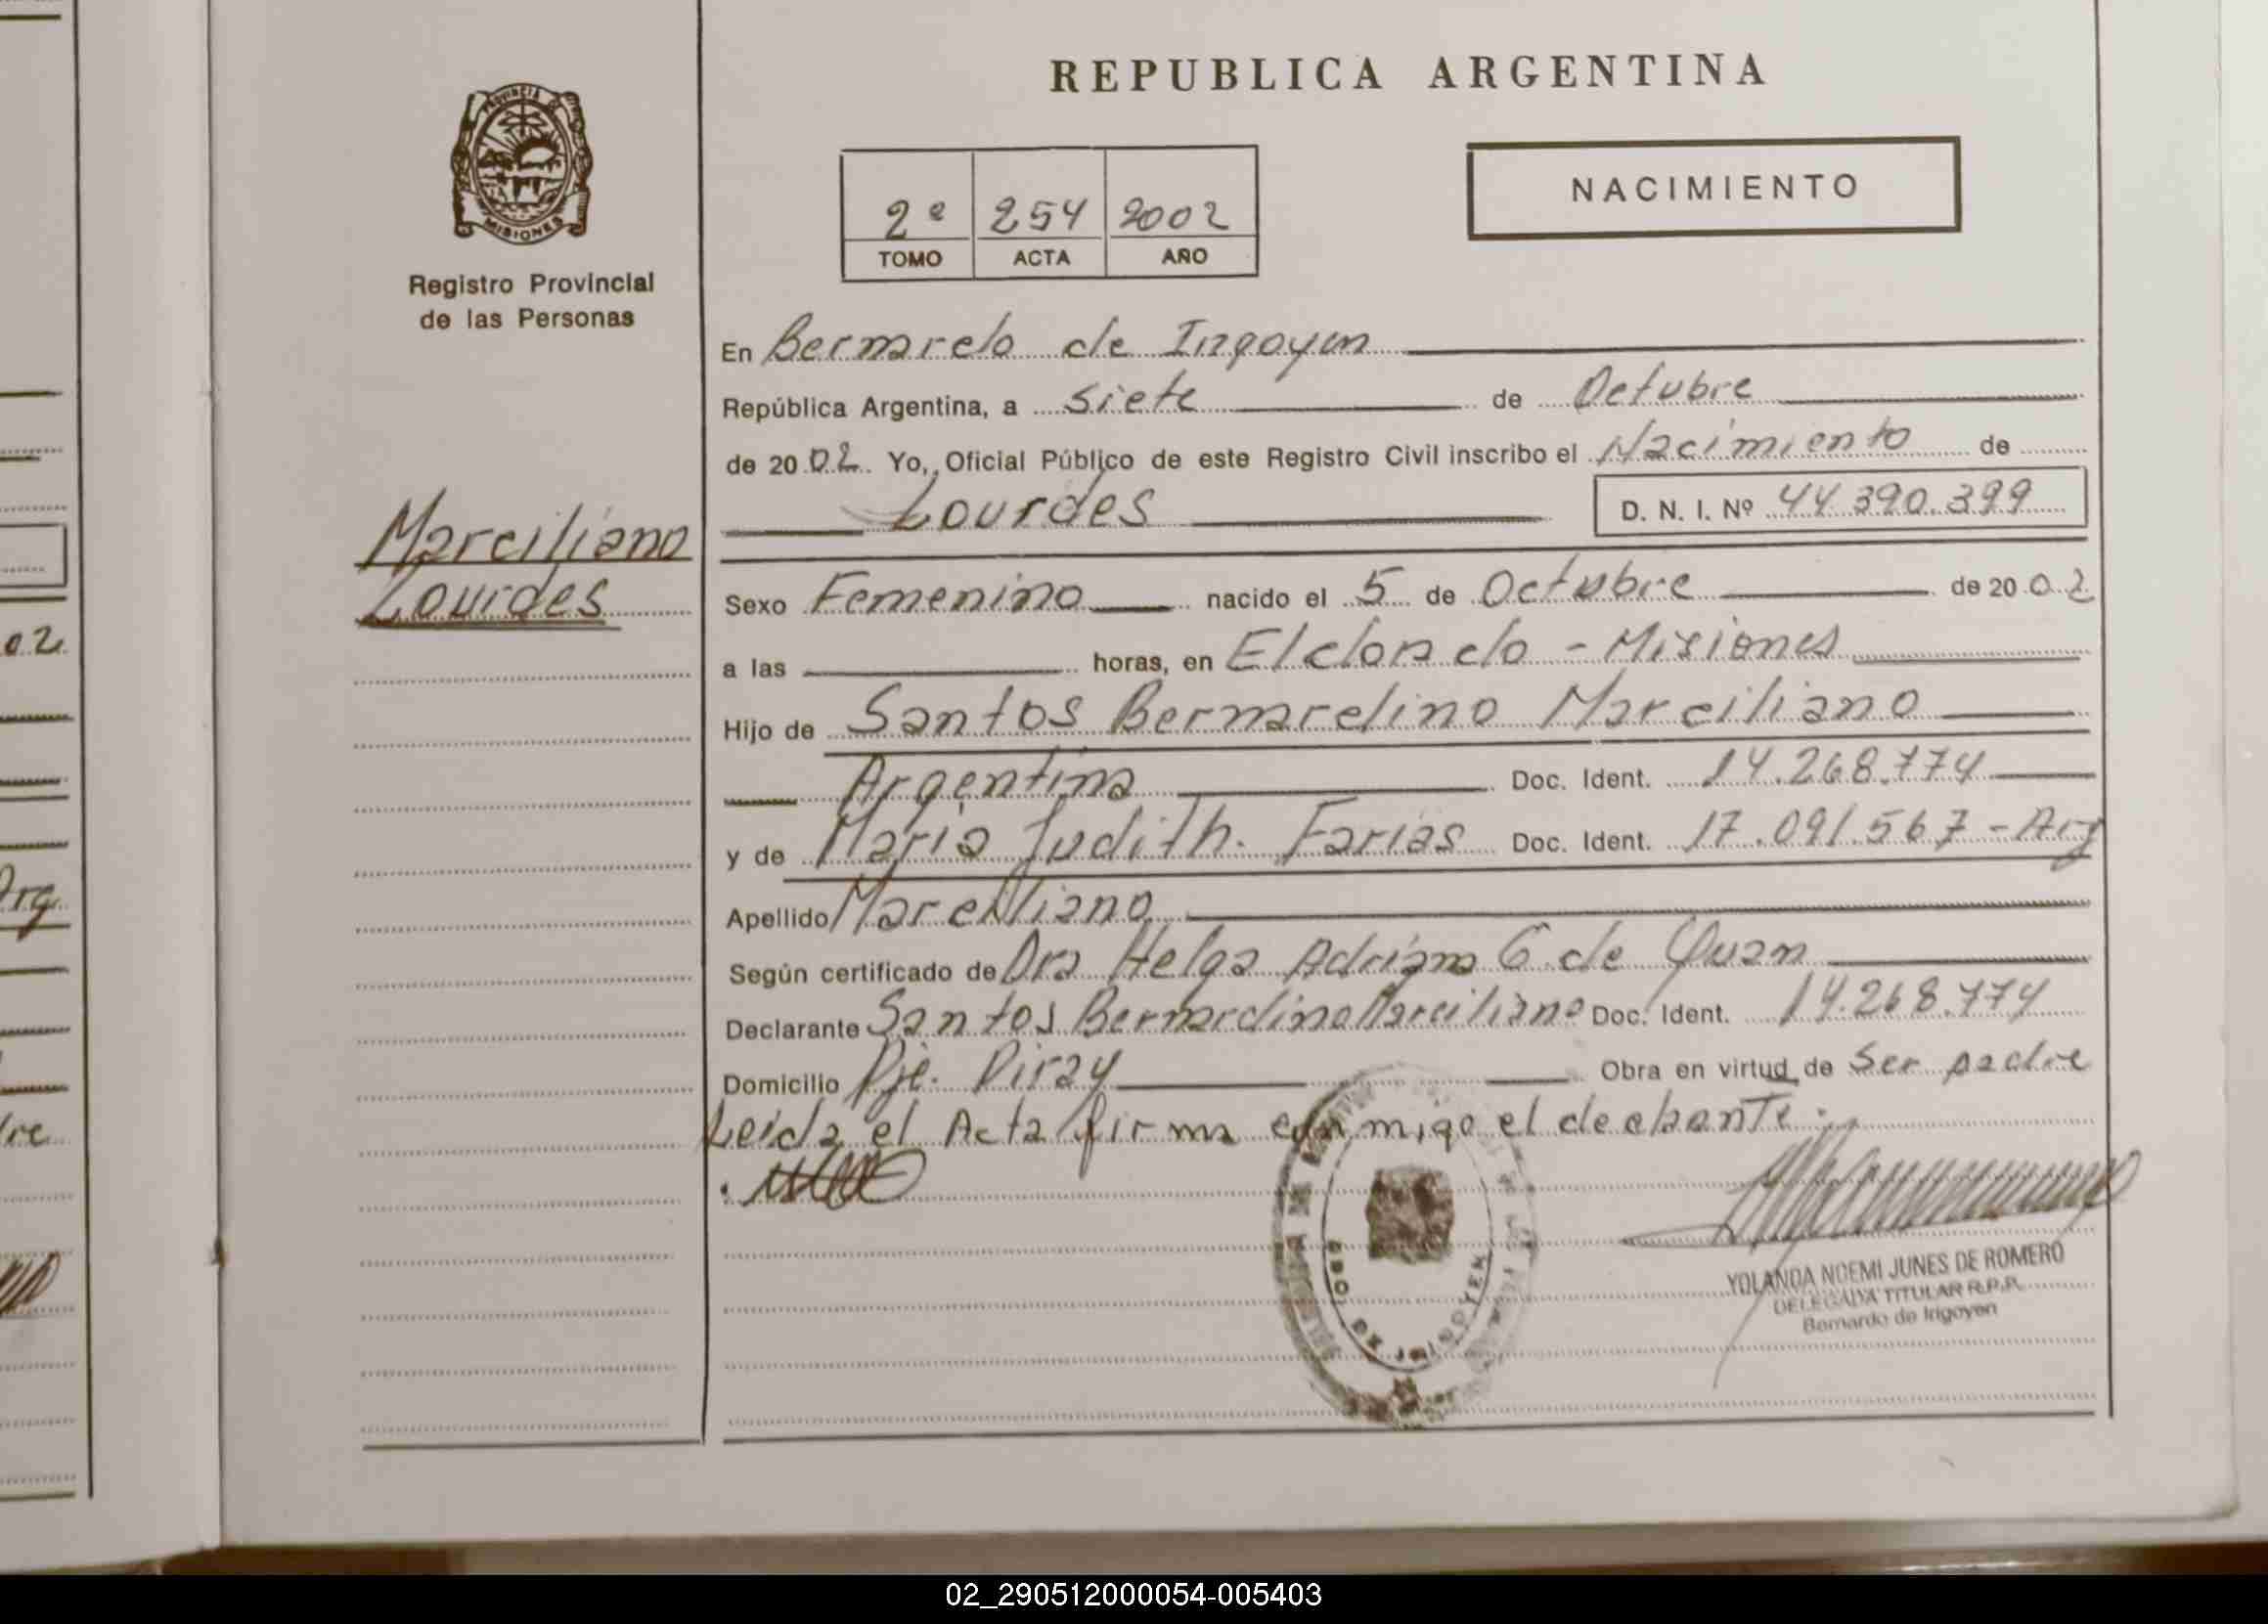 REPUBLICA ARGENTINA
PROVINCIA DE
MISIONES
Registro Provincial
de las Personas
2º 254 2002
TOMO ACTA AÑO
NACIMIENTO
En Bernardo de Irigoyen
República Argentina, a siete de Octubre
de 20 02 Yo, Oficial Público de este Registro Civil inscribo el Nacimiento de
Lourdes D. N. I. Nº 44.390.399
Marciliano
Lourdes
Sexo Femenino nacido el 5 de Octubre de 20 02
a las horas, en Eldorado - Misiones
Hijo de Santos Bernardino Marciliano
Argentina Doc. Ident. 14.268.774
y de Maria Judith. Farias Doc. Ident. 17.091.567 - Arg
Apellido Marciliano
Según certificado de Dra Helga Adriana G. de Quan
Declarante Santos Bernardino Marciliano Doc. Ident. 14.268.774
Domicilio Pje. Piray Obra en virtud de Ser padre
Leida el Acta firma conmigo el declarante.
BDO. DE IRIGOYEN
YOLANDA NOEMI JUNES DE ROMERO
DELEGADA TITULAR R.P.P.
Bernardo de Irigoyen
02
Arg
dre
02_290512000054-005403